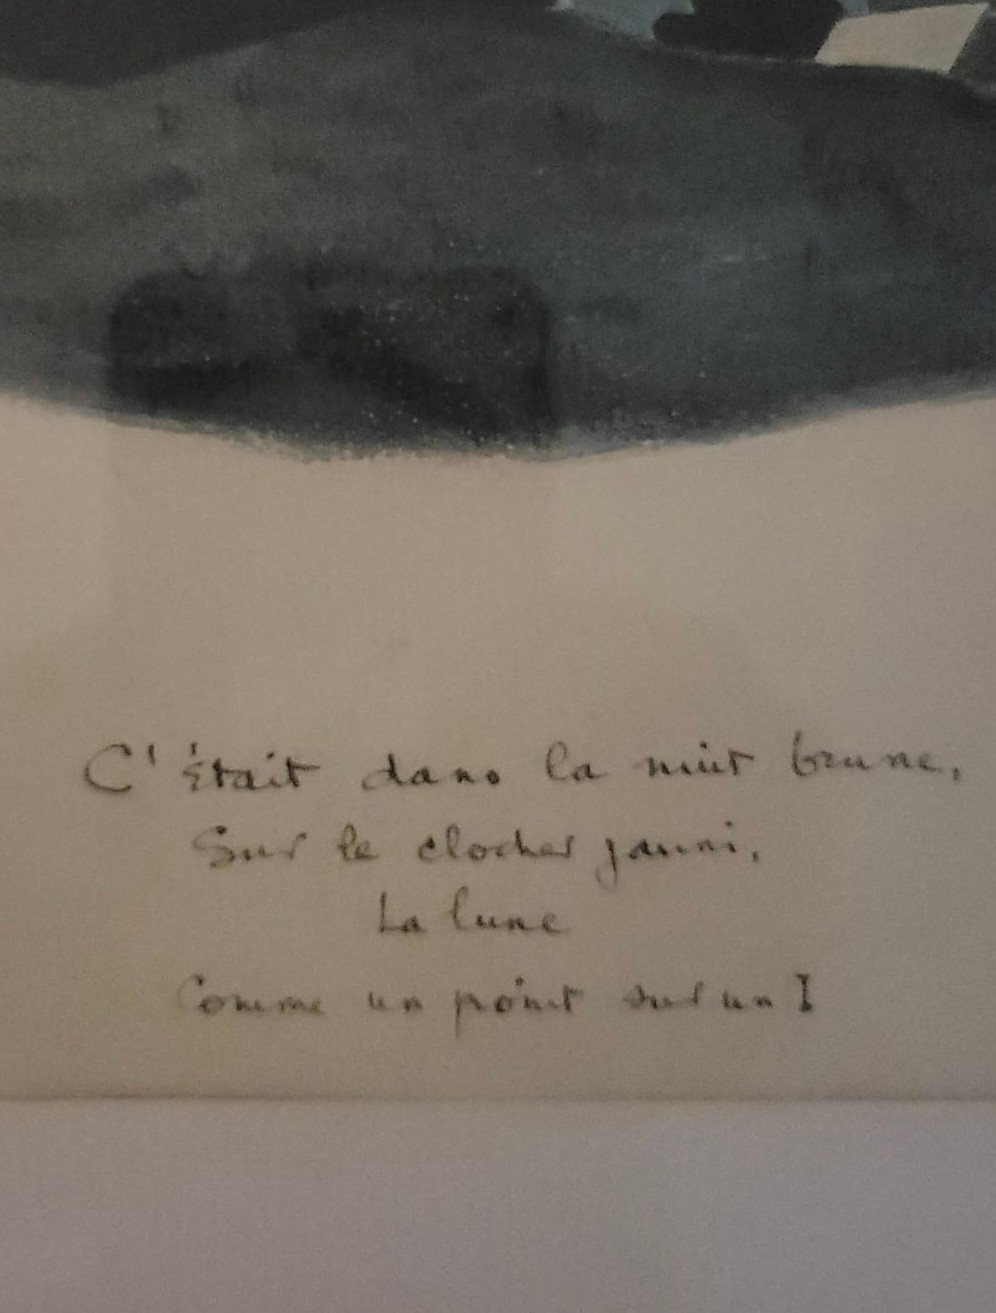 C'était dans la nuit brune,
Sur le clocher jauni,
La lune
Comme un point sur un I